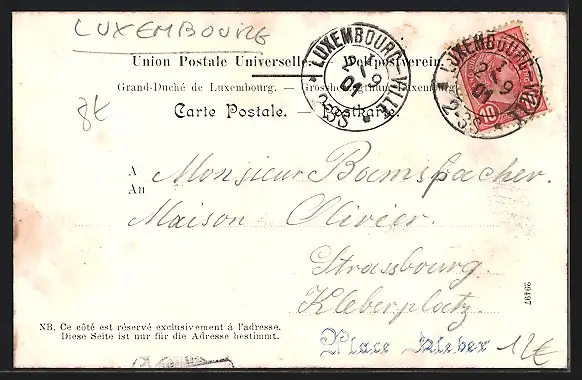 LUXEMBOURG
Union Postale Universelle. Weltpostverein.
Grand-Duché de Luxembourg. — Grossherzogthum Luxemburg.
Carte Postale. — Postkarte.
8€
LUXEMBOURG-VILLE
21 9
01
2-3S
LUXEMBOURG-VILLE
21 9
01
2-3S
10
A
Au
Monsieur Bamspacher.
Maison Olivier.
Strassbourg.
Kleberplatz.
29497
NB. Ce côté est réservé exclusivement à l'adresse.
Diese Seite ist nur für die Adresse bestimmt.
Place Kleber
12€